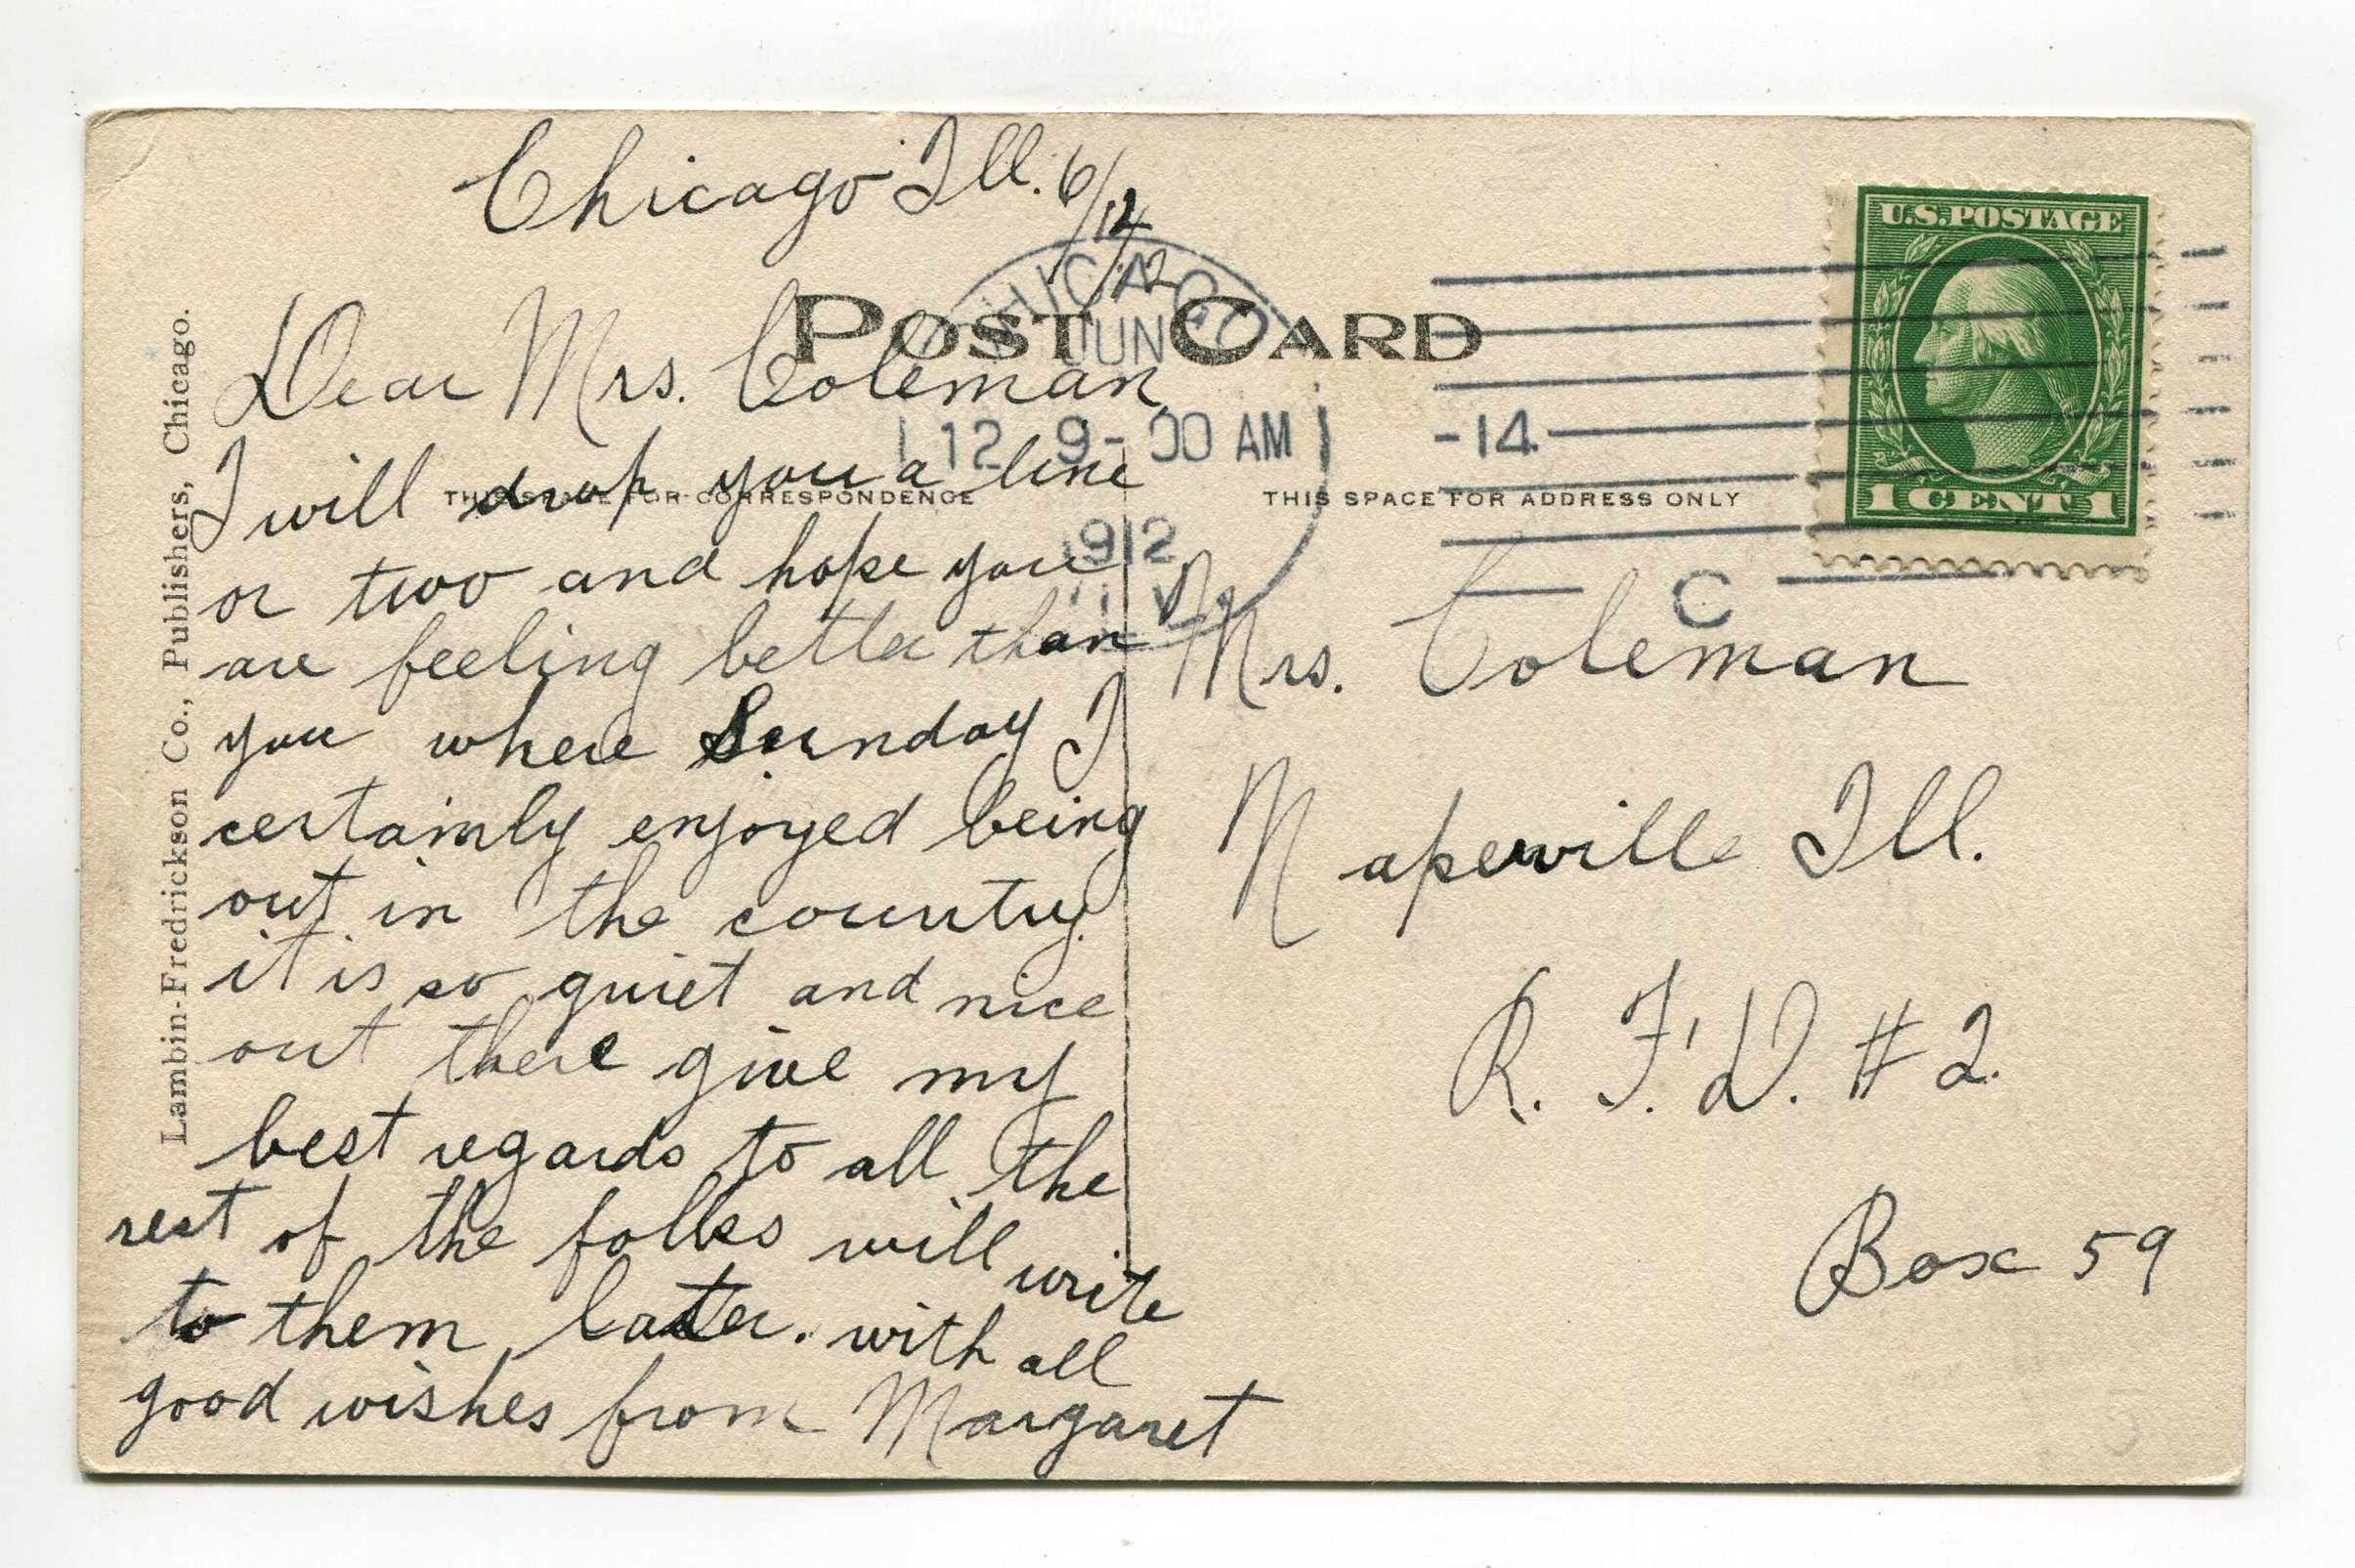 Chicago Ill. 6/12/12
POST CARD
CHICAGO
JUN
12 9-00 AM
1912
ILL.
-14
C
U.S. POSTAGE
1 CENT 1
THIS SPACE FOR CORRESPONDENCE
THIS SPACE FOR ADDRESS ONLY
Lambin-Fredrickson Co., Publishers, Chicago.
Dear Mrs. Coleman,
I will drop you a line
or two and hope you
are feeling better than
you where Sunday I
certainly enjoyed being
out in the country.
it is so quiet and nice
out there give my
best regards to all the
rest of the folks will write
to them later. with all
good wishes from Margaret
Mrs. Coleman
Naperville Ill.
R. F. D. #2.
Box 59